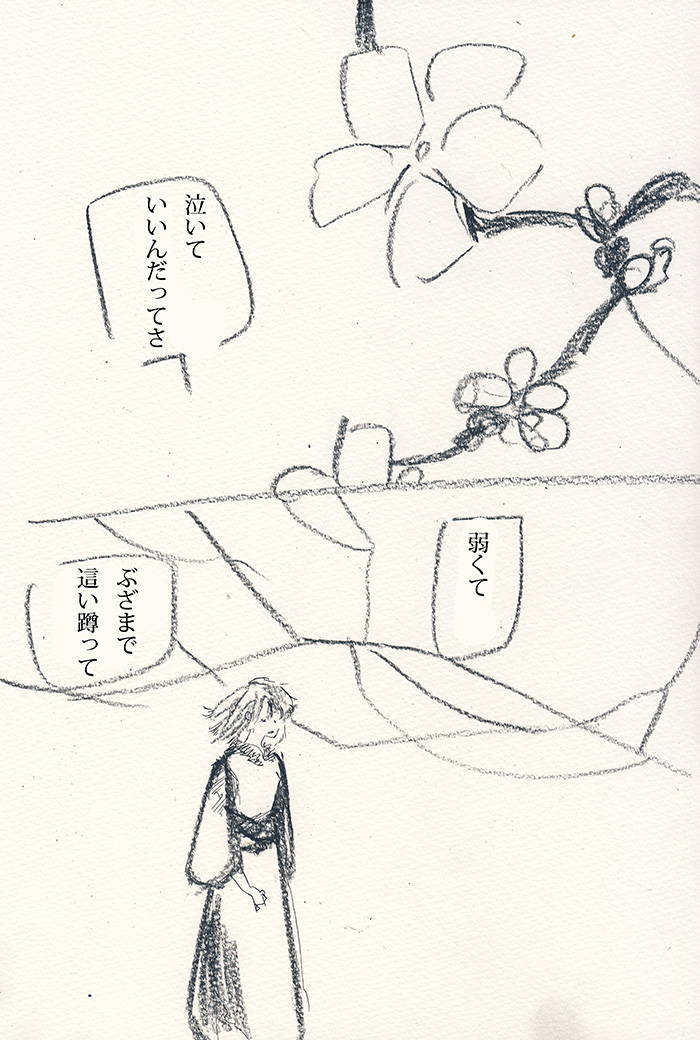 泣いて
いいんだってさ
弱くて
ぶざまで
這い蹲って